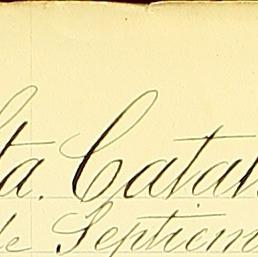 ta. Catal
de Septiem